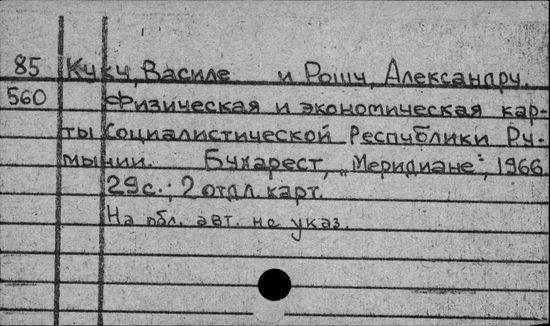 85 Куку, Василе и Рошу, Александру.
560 Физическая и экономическая кар-
ты Социалистической Республики Ру-
мынии. Бухарест, „Меридиане", 1966.
29 с.; 2 отдл. карт.
На обл. авт. не указ.